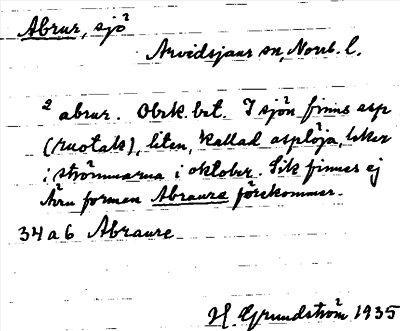 Abrur, sjö
Arvidsjaur sn, Norrb. l.
² abrur. Obek. bet. I sjön finns asp
(ruotak), liten, kallad asplöja, leker
i strömmarna i oktober. Sik finnes ej
Även formen Abraure förekommer.
34 a 6 Abraure
H. Grundström 1935